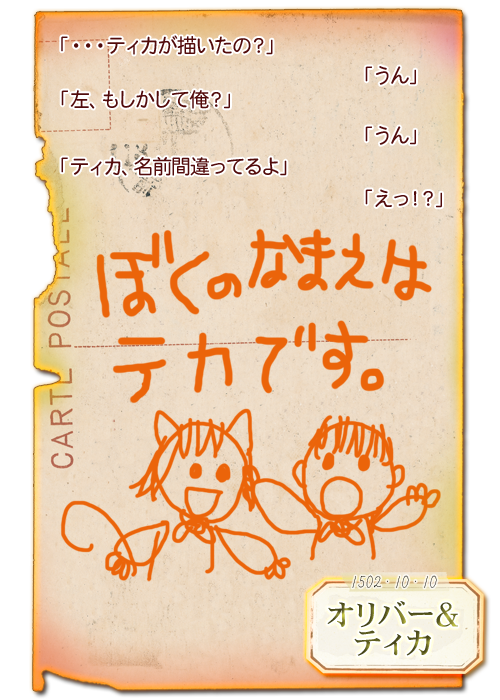 「・・・ティカが描いたの？」
「うん」
「左、もしかして俺？」
「うん」
「ティカ、名前間違ってるよ」
「えっ！？」
ぼくのなまえは
テカです。
CARTE POSTALE
1502・10・10
オリバー&
ティカ